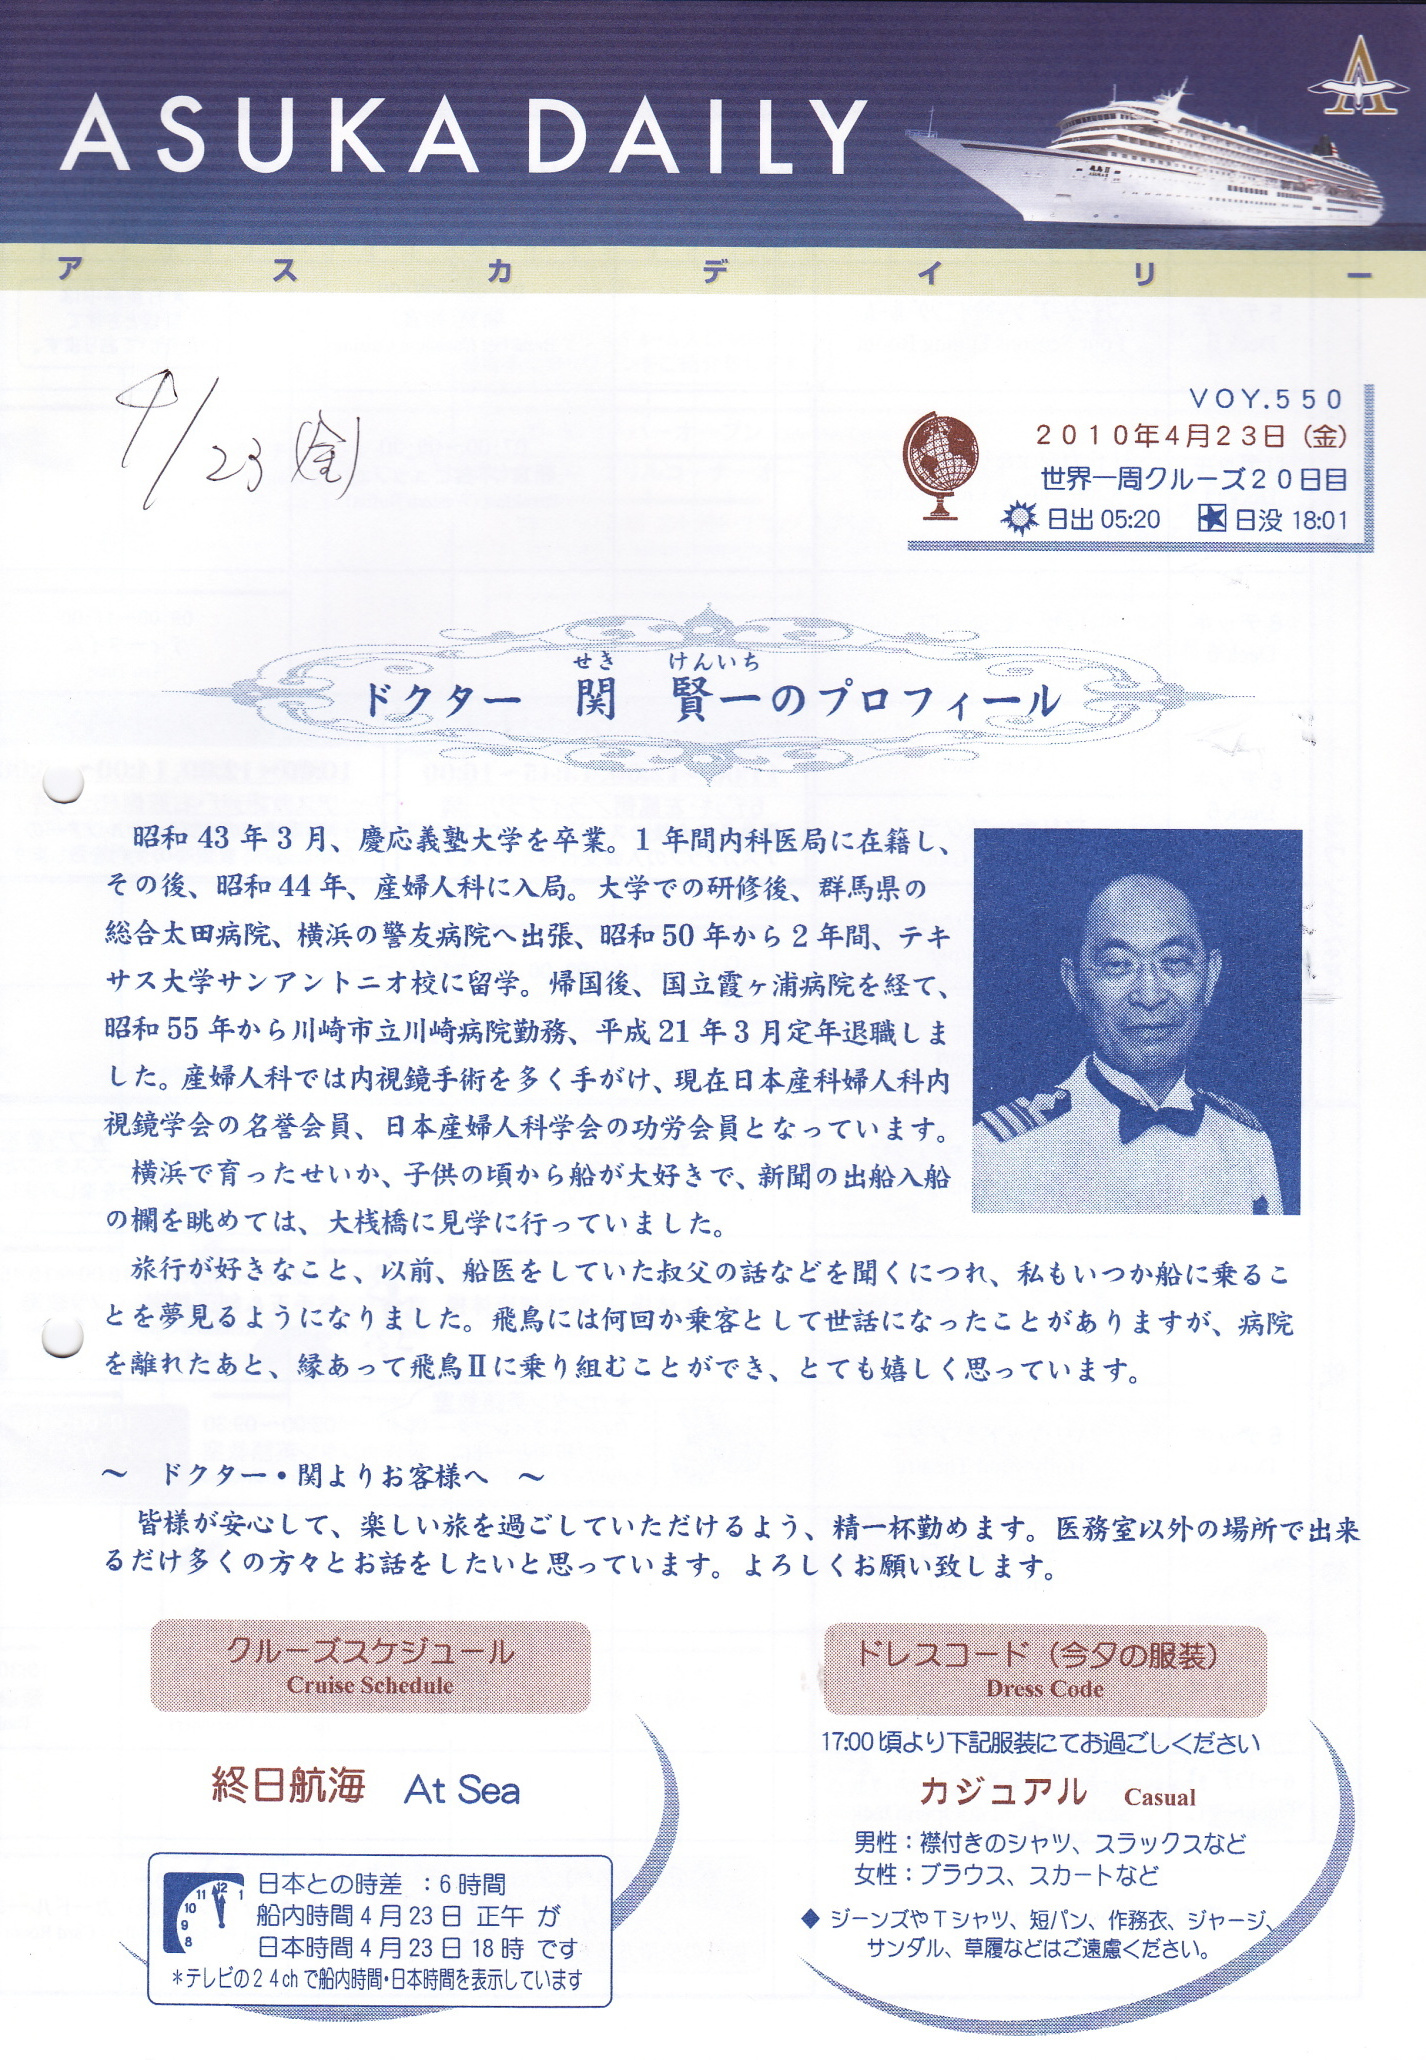 ASUKA DAILY
アスカデイリー
4/23(金)
VOY.550
2010年4月23日(金)
世界一周クルーズ20日目
日出 05:20 日没 18:01
せき けんいち
ドクター 関 賢一のプロフィール
昭和43年3月、慶応義塾大学を卒業。1年間内科医局に在籍し、
その後、昭和44年、産婦人科に入局。大学での研修後、群馬県の
総合太田病院、横浜の警友病院へ出張、昭和50年から2年間、テキ
サス大学サンアントニオ校に留学。帰国後、国立霞ヶ浦病院を経て、
昭和55年から川崎市立川崎病院勤務、平成21年3月定年退職しま
した。産婦人科では内視鏡手術を多く手がけ、現在日本産科婦人科内
視鏡学会の名誉会員、日本産婦人科学会の功労会員となっています。
横浜で育ったせいか、子供の頃から船が大好きで、新聞の出船入船
の欄を眺めては、大桟橋に見学に行っていました。
旅行が好きなこと、以前、船医をしていた叔父の話などを聞くにつれ、私もいつか船に乗るこ
とを夢見るようになりました。飛鳥には何回か乗客として世話になったことがありますが、病院
を離れたあと、縁あって飛鳥Ⅱに乗り組むことができ、とても嬉しく思っています。
～ ドクター・関よりお客様へ ～
皆様が安心して、楽しい旅を過ごしていただけるよう、精一杯勤めます。医務室以外の場所で出来
るだけ多くの方々とお話をしたいと思っています。よろしくお願い致します。
クルーズスケジュール
Cruise Schedule
終日航海 At Sea
日本との時差 : 6時間
船内時間4月23日 正午 が
日本時間4月23日18時 です
*テレビの24chで船内時間・日本時間を表示しています
8 9 10 11 12 1
ドレスコード(今夕の服装)
Dress Code
17:00頃より下記服装にてお過ごしください
カジュアル Casual
男性:襟付きのシャツ、スラックスなど
女性:ブラウス、スカートなど
◆ ジーンズやTシャツ、短パン、作務衣、ジャージ、
サンダル、草履などはご遠慮ください。